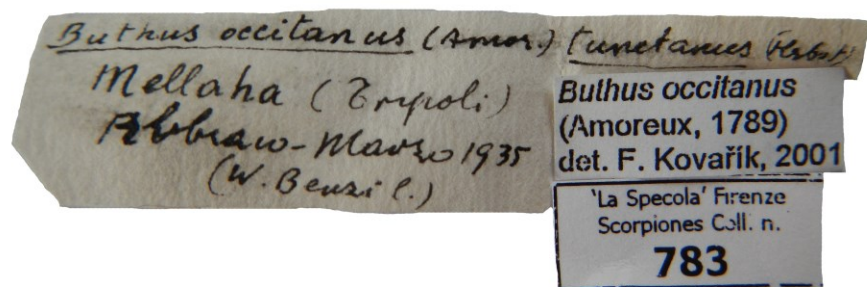 Buthus occitanus (Amor.) tunetanus (Herbst)
Mellaha (Tripoli)
Febbraio-Marzo 1935
(W. Benzi l.)
Buthus occitanus
(Amoreux, 1789)
det. F. Kovařík, 2001
'La Specola' Firenze
Scorpiones Coll. n.
783